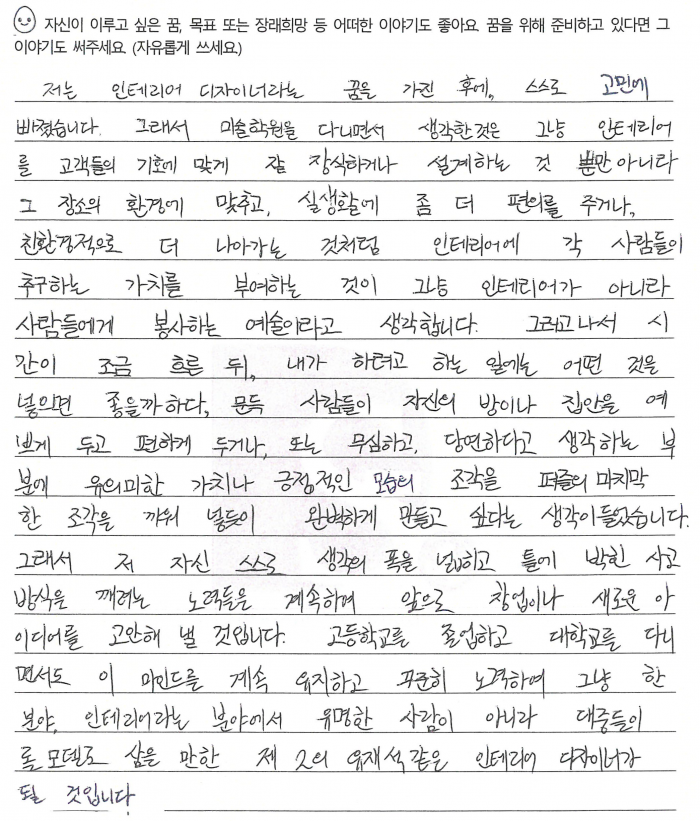 자신이 이루고 싶은 꿈, 목표 또는 장래희망 등 어떠한 이야기도 좋아요 꿈을 위해 준비하고 있다면 그
이야기도 써주세요 (자유롭게 쓰세요.)
저는 인테리어 디자이너라는 꿈을 가진 후에, 스스로 고민에
빠졌습니다. 그래서 미술학원을 다니면서 생각한것은 그냥 인테리어
를 고객들의 기호에 맞게 잘 장식하거나 설계하는 것 뿐만 아니라
그 장소의 환경에 맞추고, 실생활에 좀 더 편의를 주거나,
친환경적으로 더 나아가는 것처럼 인테리어에 각 사람들이
추구하는 가치를 부여하는 것이 그냥 인테리어가 아니라
사람들에게 봉사하는 예술이라고 생각합니다. 그러고 나서 시
간이 조금 흐른 뒤, 내가 하려고 하는 일에는 어떤 것을
넣으면 좋을까 하다, 문득 사람들이 자신의 방이나 집안을 예
쁘게 두고 편하게 두거나, 또는 무심하고, 당연하다고 생각하는 부
분에 유의미한 가치나 긍정적인 모습의 조각을 퍼즐의 마지막
한 조각을 끼워 넣듯이 완벽하게 만들고 싶다는 생각이 들었습니다.
그래서 저 자신 스스로 생각의 폭을 넓히고 틀에 박힌 사고
방식을 깨려는 노력들을 계속하며 앞으로 창업이나 새로운 아
이디어를 고안해 낼 것입니다. 고등학교를 졸업하고 대학교를 다니
면서도 이 마인드를 계속 유지하고 꾸준히 노력하여 그냥 한
분야, 인테리어라는 분야에서 유명한 사람이 아니라 대중들이
롤모델로 삼을 만한 제 2의 유재석 같은 인테리어 디자이너가
될 것입니다